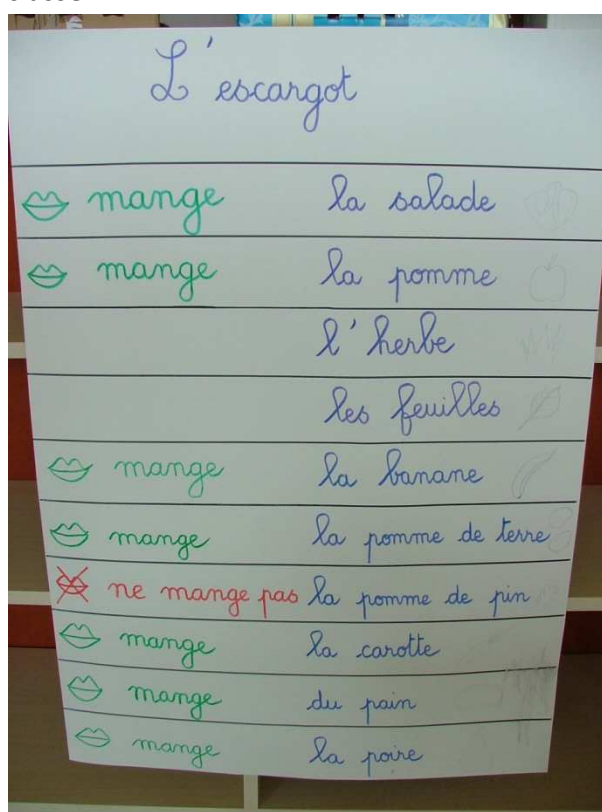 L'escargot
mange la salade
mange la pomme
l'herbe
les feuilles
mange la banane
mange la pomme de terre
ne mange pas la pomme de pin
mange la carotte
mange du pain
mange la poire